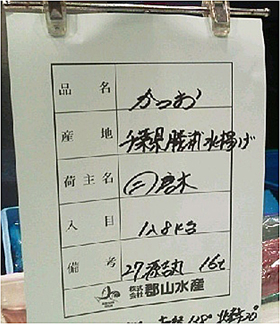 品名 かつお
産地 千葉県勝浦水揚げ
荷主名 ㊁唐木
入目 12.8kg
備考 27 16t
株式会社 郡山水産